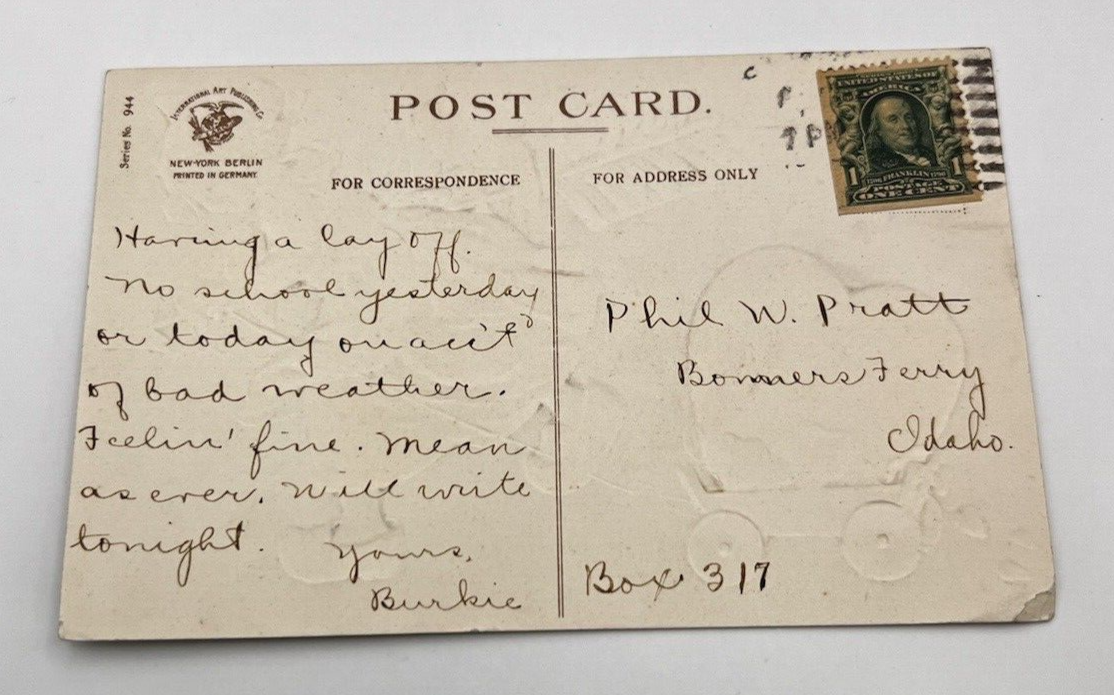 Series No. 944
INTERNATIONAL ART PUBLISHING Co
NEW-YORK BERLIN
PRINTED IN GERMANY.
POST CARD.
FOR CORRESPONDENCE
FOR ADDRESS ONLY
UNITED STATES OF
AMERICA
1 FRANKLIN 1
POSTAGE
ONE CENT
Having a lay off.
No school yesterday
or today on acc't
of bad weather.
Feelin' fine. Mean
as ever. Will write
tonight.
Yours,
Burkie
Phil W. Pratt
Bonners Ferry
Idaho.
Box 317